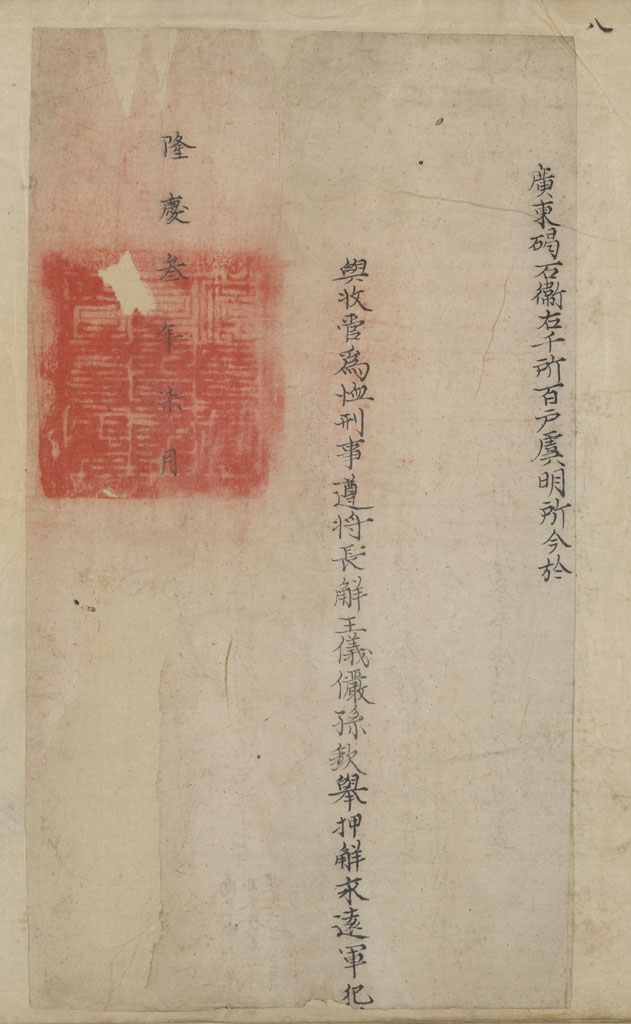 八
廣東碣石衞右千所百戶虞明所今於
與收管爲恤刑事遵將長解王儀儼孫欽舉押解永遠軍犯
隆慶叁年柒月